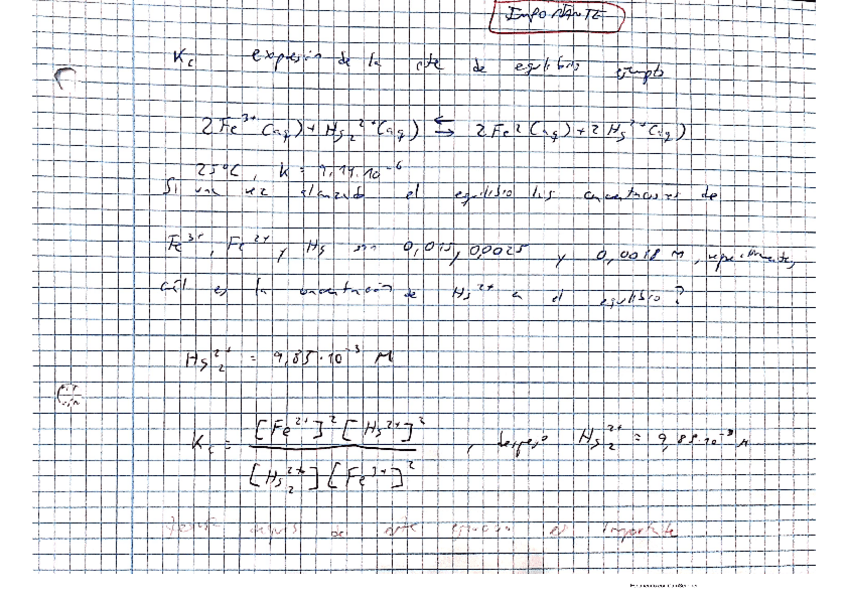 IMPORTANTE
Kc expresión de la cte de equilibrio ejemplo
2Fe³⁺(aq) + Hg₂²⁺(aq) ⇄ 2Fe²(aq) + 2Hg²⁺(aq)
25ºC, k = 9,14·10⁻⁶
Si una vez alcanzado el equilibrio las concentraciones de
Fe³⁺, Fe²⁺ y Hg son 0,015, 0,0025 y 0,0018 M, respectivamente,
cuál es la concentración de Hg²⁺ en el equilibrio?
Hg₂²⁺ = 9,85·10⁻³ M
Kc = [Fe²⁺]² [Hg²⁺]² / [Hg₂²⁺] [Fe³⁺]² , despejo Hg₂²⁺ = 9,85·10⁻³ M
de este ejercicio es importante